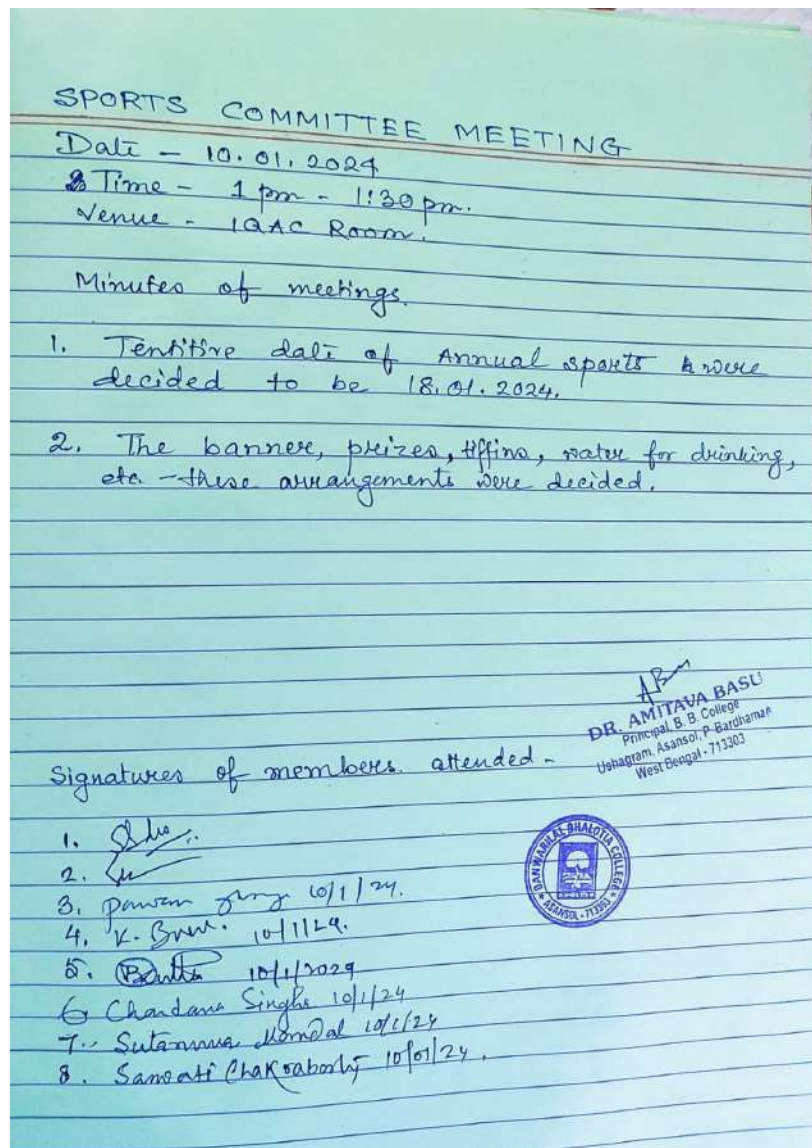 SPORTS COMMITTEE MEETING
Date - 10.01.2024
Time - 1 pm - 1:30 pm.
Venue - IQAC Room.
Minutes of meetings.
1. Tentitive date of Annual sports were
decided to be 18.01.2024.
2. The banner, prizes, tiffins, water for drinking,
etc - these arrangements were decided.
DR. AMITAVA BASU
Principal, B. B. College
Ushagram, Asansol, P. Bardhaman
West Bengal - 713303
Signatures of members attended -
1.
2.
3. Pawan 10/1/24.
4. K. 10/1/24.
5. 10/1/2024
6 Chandana Singha 10/1/24
7. Sutanuva Mondal 10/1/24
8. Sanwati Chakraborty 10/01/24.
BANWARILAL BHALOTIA COLLEGE
ASANSOL - 713303